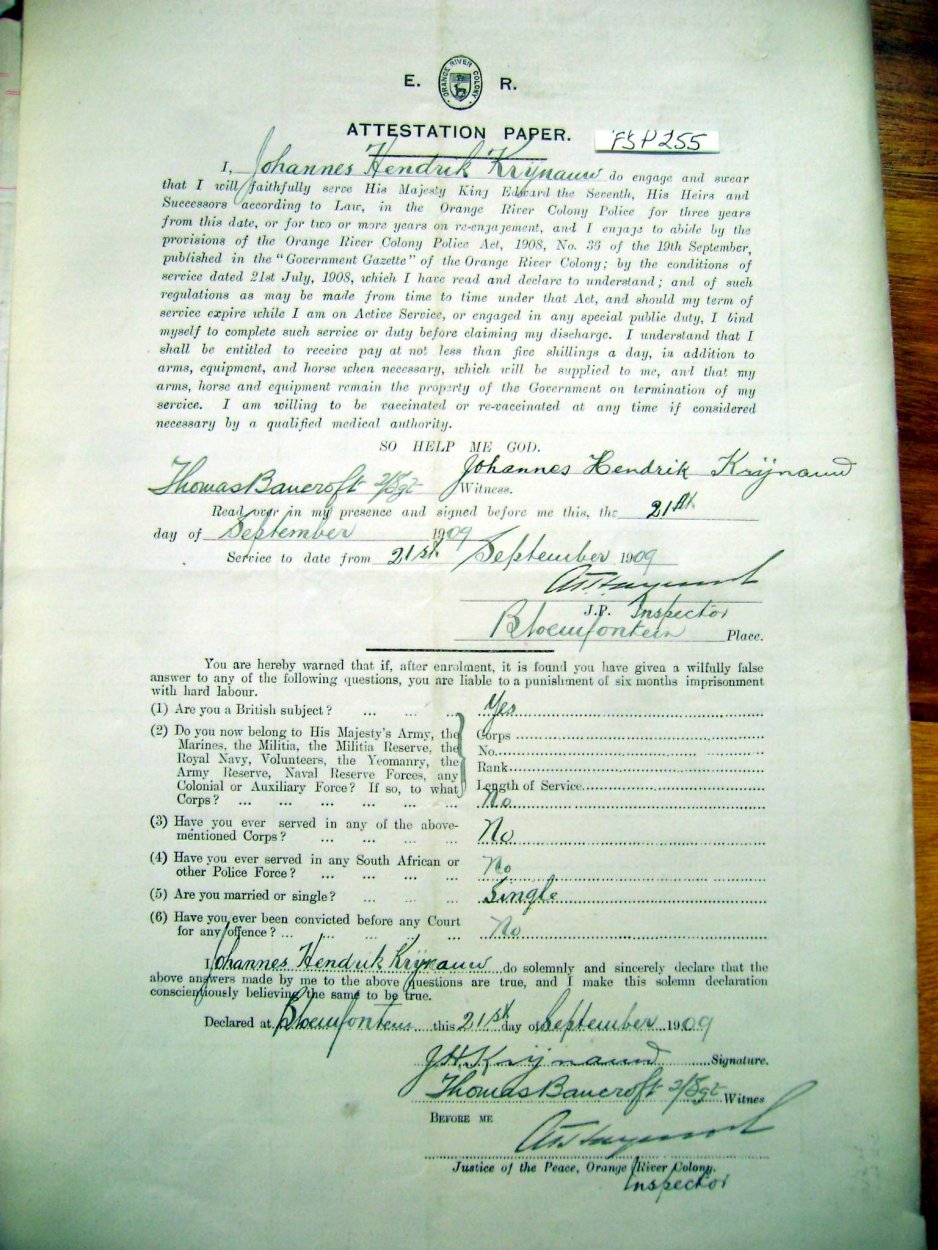 E. R.
ORANGE RIVER COLONY
ATTESTATION PAPER.
FSP255
I, Johannes Hendrik Krynauw do engage and swear
that I will faithfully serve His Majesty King Edward the Seventh, His Heirs and
Successors according to Law, in the Orange River Colony Police for three years
from this date, or for two or more years on re-engagement, and I engage to abide by the
provisions of the Orange River Colony Police Act, 1908, No. 36 of the 19th September,
published in the "Government Gazette" of the Orange River Colony; by the conditions of
service dated 21st July, 1908, which I have read and declare to understand; and of such
regulations as may be made from time to time under that Act, and should my term of
service expire while I am on Active Service, or engaged in any special public duty, I bind
myself to complete such service or duty before claiming my discharge. I understand that I
shall be entitled to receive pay at not less than five shillings a day, in addition to
arms, equipment, and horse when necessary, which will be supplied to me, and that my
arms, horse and equipment remain the property of the Government on termination of my
service. I am willing to be vaccinated or re-vaccinated at any time if considered
necessary by a qualified medical authority.
SO HELP ME GOD.
Johannes Hendrik Krijnauw
Thomas Bancroft 2/Sgt Witness.
Read over in my presence and signed before me this, the 21st
day of September 1909
Service to date from 21st September 1909
J.P. Inspector
Bloemfontein Place.
You are hereby warned that if, after enrolment, it is found you have given a wilfully false
answer to any of the following questions, you are liable to a punishment of six months imprisonment
with hard labour.
(1) Are you a British subject? ... ... ... Yes
(2) Do you now belong to His Majesty's Army, the
Marines, the Militia, the Militia Reserve, the
Royal Navy, Volunteers, the Yeomanry, the
Army Reserve, Naval Reserve Forces, any
Colonial or Auxiliary Force? If so, to what
Corps? ... ... ... ... ... ...
Corps
No.
Rank
Length of Service
No
(3) Have you ever served in any of the above-
mentioned Corps? ... ... ... ... No
(4) Have you ever served in any South African or
other Police Force? ... ... ... ... No
(5) Are you married or single? ... ... ... Single
(6) Have you ever been convicted before any Court
for any offence? ... ... ... ... ... No
I, Johannes Hendrik Krynauw do solemnly and sincerely declare that the
above answers made by me to the above questions are true, and I make this solemn declaration
conscientiously believing the same to be true.
Declared at Bloemfontein this 21st day of September 1909
J.H. Krijnauw Signature.
Thomas Bancroft 2/Sgt Witnes
BEFORE ME
Justice of the Peace, Orange River Colony.
Inspector